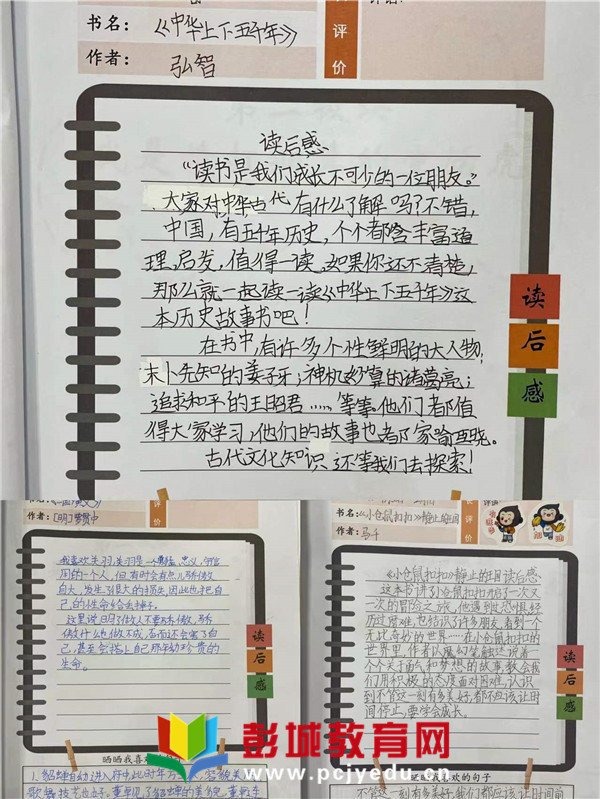 书名：《中华上下五千年》
作者：弘智
评
价
读后感
“读书是我们成长不可少的一位朋友。”
大家对中华古代有什么了解吗？不错，
中国，有五千年历史，个个都含丰富道
理，启发，值得一读，如果你还不清楚，
那么就一起读一读《中华上下五千年》这
本历史故事书吧！
在书中，有许多个性鲜明的大人物；
未卜先知的姜子牙；神机妙算的诸葛亮；
追求和平的王昭君……等等。他们都值
得大家学习，他们的故事也都家喻户晓。
古代文化知识还等我们去探索！
读
后
感
作者：[明]罗贯中
价
我喜欢关羽，关羽是一个勇猛、忠义、守
的一个人，但有时会有点儿骄傲
自大，发生了很大的损失，因此也把自
己的性命给丢掉了。
这里说明了做人不要骄傲，骄
傲什么也做不成，否而还会害了自
己，甚至会搭上自己那年幼珍贵的
生命。
读
后
感
晒晒我喜欢
书名：《小仓鼠扣扣》静止的王国
作者：马千
评
价
《小仓鼠扣扣》静止的王国读后感
这本书讲了小仓鼠扣扣的了一次又
一次的冒险之旅，他遇到过恐惧，经
历过苦难，也结识了许多朋友，看到一个
无比奇妙的世界……在小仓鼠扣扣的
世界里，作者以魔幻笔触达说着一
个个关于面气和梦想的故事，教会我
们用积极的态度面对困难，认识
到不管这一刻有多美好，都不应该让时
间停止，要学会成长。
读
后
感
喜欢的句子
不管这一刻有多美好，我们都应该让时间前
彭城教育网
www.pcjyedu.cn